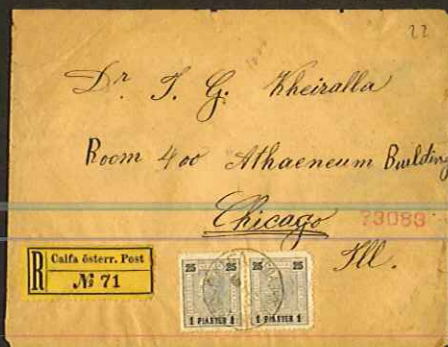 22
Dr. I. G. Kheiralla
Room 400 Athaeneum Building
Chicago
73083
Ill.
R Caifa österr. Post
№ 71
25 25 25 25
1 PIASTER 1 1 PIASTER 1